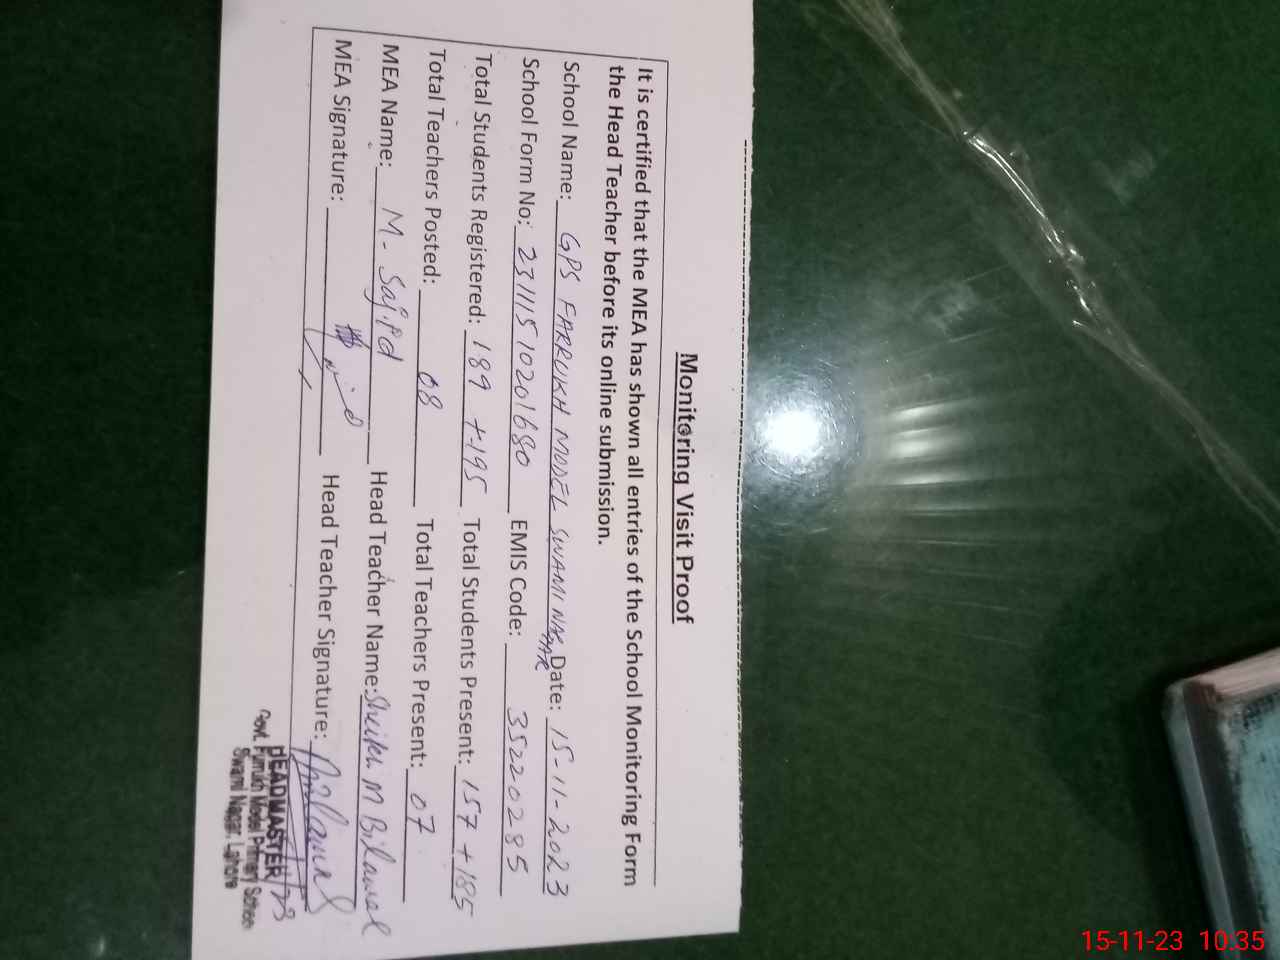 Monitoring Visit Proof
It is certified that the MEA has shown all entries of the School Monitoring Form
the Head Teacher before its online submission.
School Name: GPS FARRUKH MODEL SWAMI NAGAR Date: 15-11-2023
School Form No: 231115 10201680 EMIS Code: 35220285
Total Students Registered: 189 +195 Total Students Present: 157 +185
Total Teachers Posted: 08 Total Teachers Present: 07
MEA Name: M. Sajid Head Teacher Name: Sheikh M Bilawal
MEA Signature: Head Teacher Signature:
HEADMASTER
Govt. Farrukh Model Primary School
Swami Nagar, Lahore
15-11-23 10:35